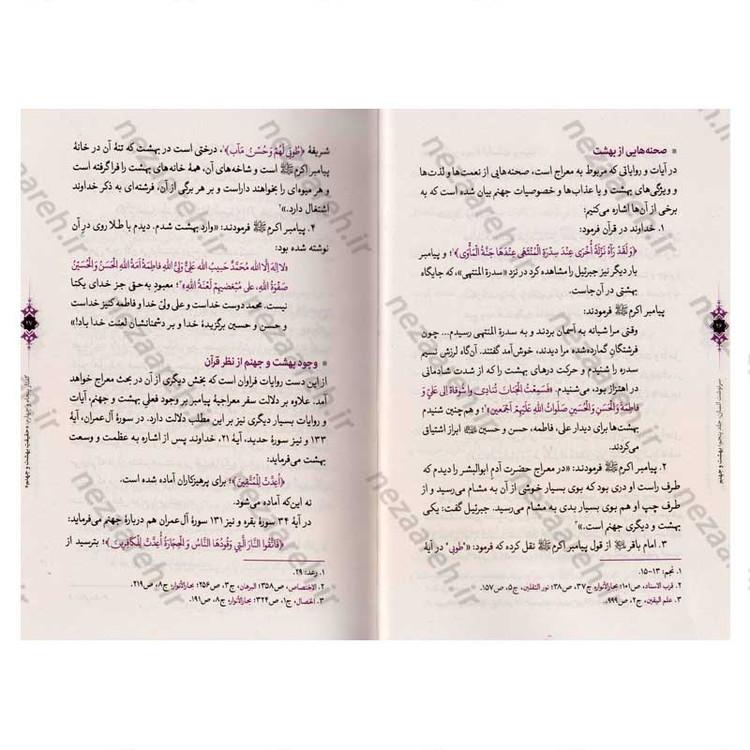 ▪ صحنه‌هایی از بهشت
در آیات و روایاتی که مربوط به معراج است، صحنه‌هایی از نعمت‌ها و لذت‌ها
و ویژگی‌های بهشت و یا عذاب‌ها و خصوصیات جهنم بیان شده است که به
برخی از آن‌ها اشاره می‌کنیم:
۱. خداوند در قرآن فرمود:
﴿وَلَقَدْ رَآهُ نَزْلَةً أُخْرَى عِندَ سِدْرَةِ الْمُنْتَهَى عِندَهَا جَنَّةُ الْمَأْوَى﴾¹؛ و پیامبر
بار دیگر نیز جبرئیل را مشاهده کرد در نزد «سدرة المنتهی»، که جایگاه
بهشتی در آن‌جاست.
پیامبر اکرم ﷺ فرمودند:
وقتی مرا شبانه به آسمان بردند و به سدرة المنتهی رسیدم... چون
فرشتگانِ گمارده‌شده مرا دیدند، خوش‌آمد گفتند. آن‌گاه لرزش نسیم
سدره را شنیدم و حرکت درهای بهشت را که از شدت شادمانی
در اهتزاز بود، می‌شنیدم. «فَسَمِعْتُ الْجِنَانَ تُنَادِي وَا شَوْقَاهُ إِلَى عَلِيٍّ وَ
فَاطِمَةَ وَالْحَسَنِ وَالْحُسَيْنِ صَلَوَاتُ اللهِ عَلَيْهِمْ أَجْمَعِينَ»²؛ و هم‌چنین شنیدم
بهشت‌ها برای دیدار علی، فاطمه، حسن و حسین ﷺ ابراز اشتیاق
می‌کردند.
۲. پیامبر اکرم ﷺ فرمودند: «در معراج حضرت آدم ابوالبشر را دیدم که
طرف راست او دری بود که بوی بسیار خوشی از آن به مشام می‌رسید و از
طرف چپ او هم بوی بسیار بدی به مشام می‌رسید. جبرئیل گفت: یکی
بهشت و دیگری جهنم است.»³
۳. امام باقر از قول پیامبر اکرم ﷺ نقل کرده که فرمود: «"طوبی" در آیهٔ
۱. نجم: ۱۳-۱۵.
۲. قرب الاسناد، ص۱۰۱؛ بحارالأنوار، ج۳۷، ص۳۸؛ نور الثقلین، ج۵، ص۱۵۷.
۳. علم الیقین، ج۲، ص۹۹۹.
سرنوشت انسان، جلد پنجم: بهشت و جهنم
شریفهٔ ﴿طُوبَى لَهُمْ وَحُسْنُ مَآبٍ﴾¹، درختی است در بهشت که تنهٔ آن در خانهٔ
پیامبر اکرم ﷺ است و شاخه‌های آن، همهٔ خانه‌های بهشت را فراگرفته است
و هر میوه‌ای را بخواهند داراست و بر هر برگی از آن، فرشته‌ای به ذکر خداوند
اشتغال دارد.»²
۴. پیامبر اکرم ﷺ فرمودند: «وارد بهشت شدم. دیدم با طلا روی درِ آن
نوشته شده بود:
«لا إله إلّا الله مُحَمَّدٌ حَبِيبُ اللهِ عَلِيٌّ وَلِيُّ اللهِ فَاطِمَةُ أَمَةُ اللهِ الْحَسَنُ وَ الْحُسَيْنُ
صَفْوَةُ اللهِ، عَلى مُبْغِضِهِمْ لَعْنَةُ اللهِ»³؛ معبودِ به‌حق جز خدای یکتا
نیست. محمد دوست خداست و علی ولیّ خدا و فاطمه کنیز خداست
و حسن و حسین برگزیدهٔ خدا و بر دشمنانشان لعنت خدا باد!»
▪ وجود بهشت و جهنم از نظر قرآن
از این دست روایات فراوان است که بخش دیگری از آن در بحث معراج خواهد
آمد. علاوه بر دلالت سفر معراجیهٔ پیامبر بر وجود فعلیِ بهشت و جهنم، آیات
و روایات بسیار دیگری نیز بر این مطلب دلالت دارد. در سورهٔ آل‌عمران، آیهٔ
۱۳۳ و نیز سورهٔ حدید، آیهٔ ۲۱، خداوند پس از اشاره به عظمت و وسعت
بهشت می‌فرماید:
﴿أُعِدَّتْ لِلْمُتَّقِينَ﴾؛ برای پرهیزکاران آماده شده است.
نه این‌که آماده می‌شود.
در آیهٔ ۳۴ سورهٔ بقره و نیز ۱۳۱ سورهٔ آل‌عمران هم دربارهٔ جهنم می‌فرماید:
﴿فَاتَّقُوا النَّارَ الَّتِي وَقُودُهَا النَّاسُ وَ الْحِجَارَةُ أُعِدَّتْ لِلْكَافِرِينَ﴾؛ بترسید از
۱. رعد: ۲۹.
۲. الاختصاص، ص۳۵۸؛ البرهان، ج۳، ص۲۵۶؛ بحارالأنوار، ج۸، ص۲۱۹.
۳. الخصال، ج۱، ص۳۲۴؛ بحارالأنوار، ج۸، ص۱۹۱.
nezaareh.ir